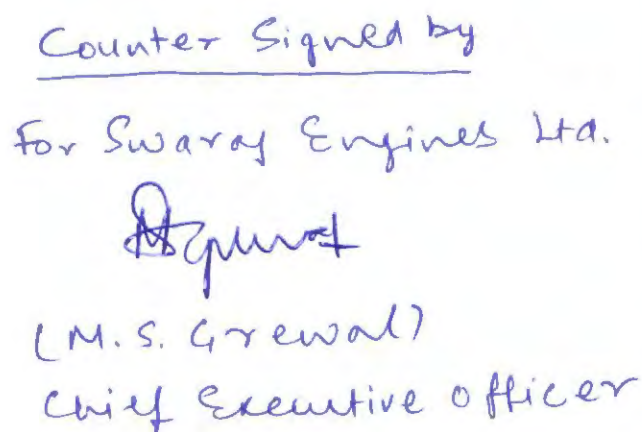 Counter Signed by
For Swaraj Engines Ltd.
(M.S. Grewal)
Chief Executive Officer